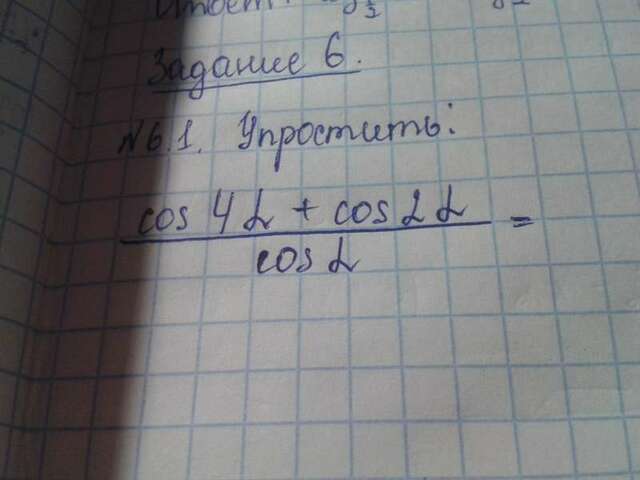 Задание 6.
№6.1. Упростить:
cos 4α + cos 2α =
cos α